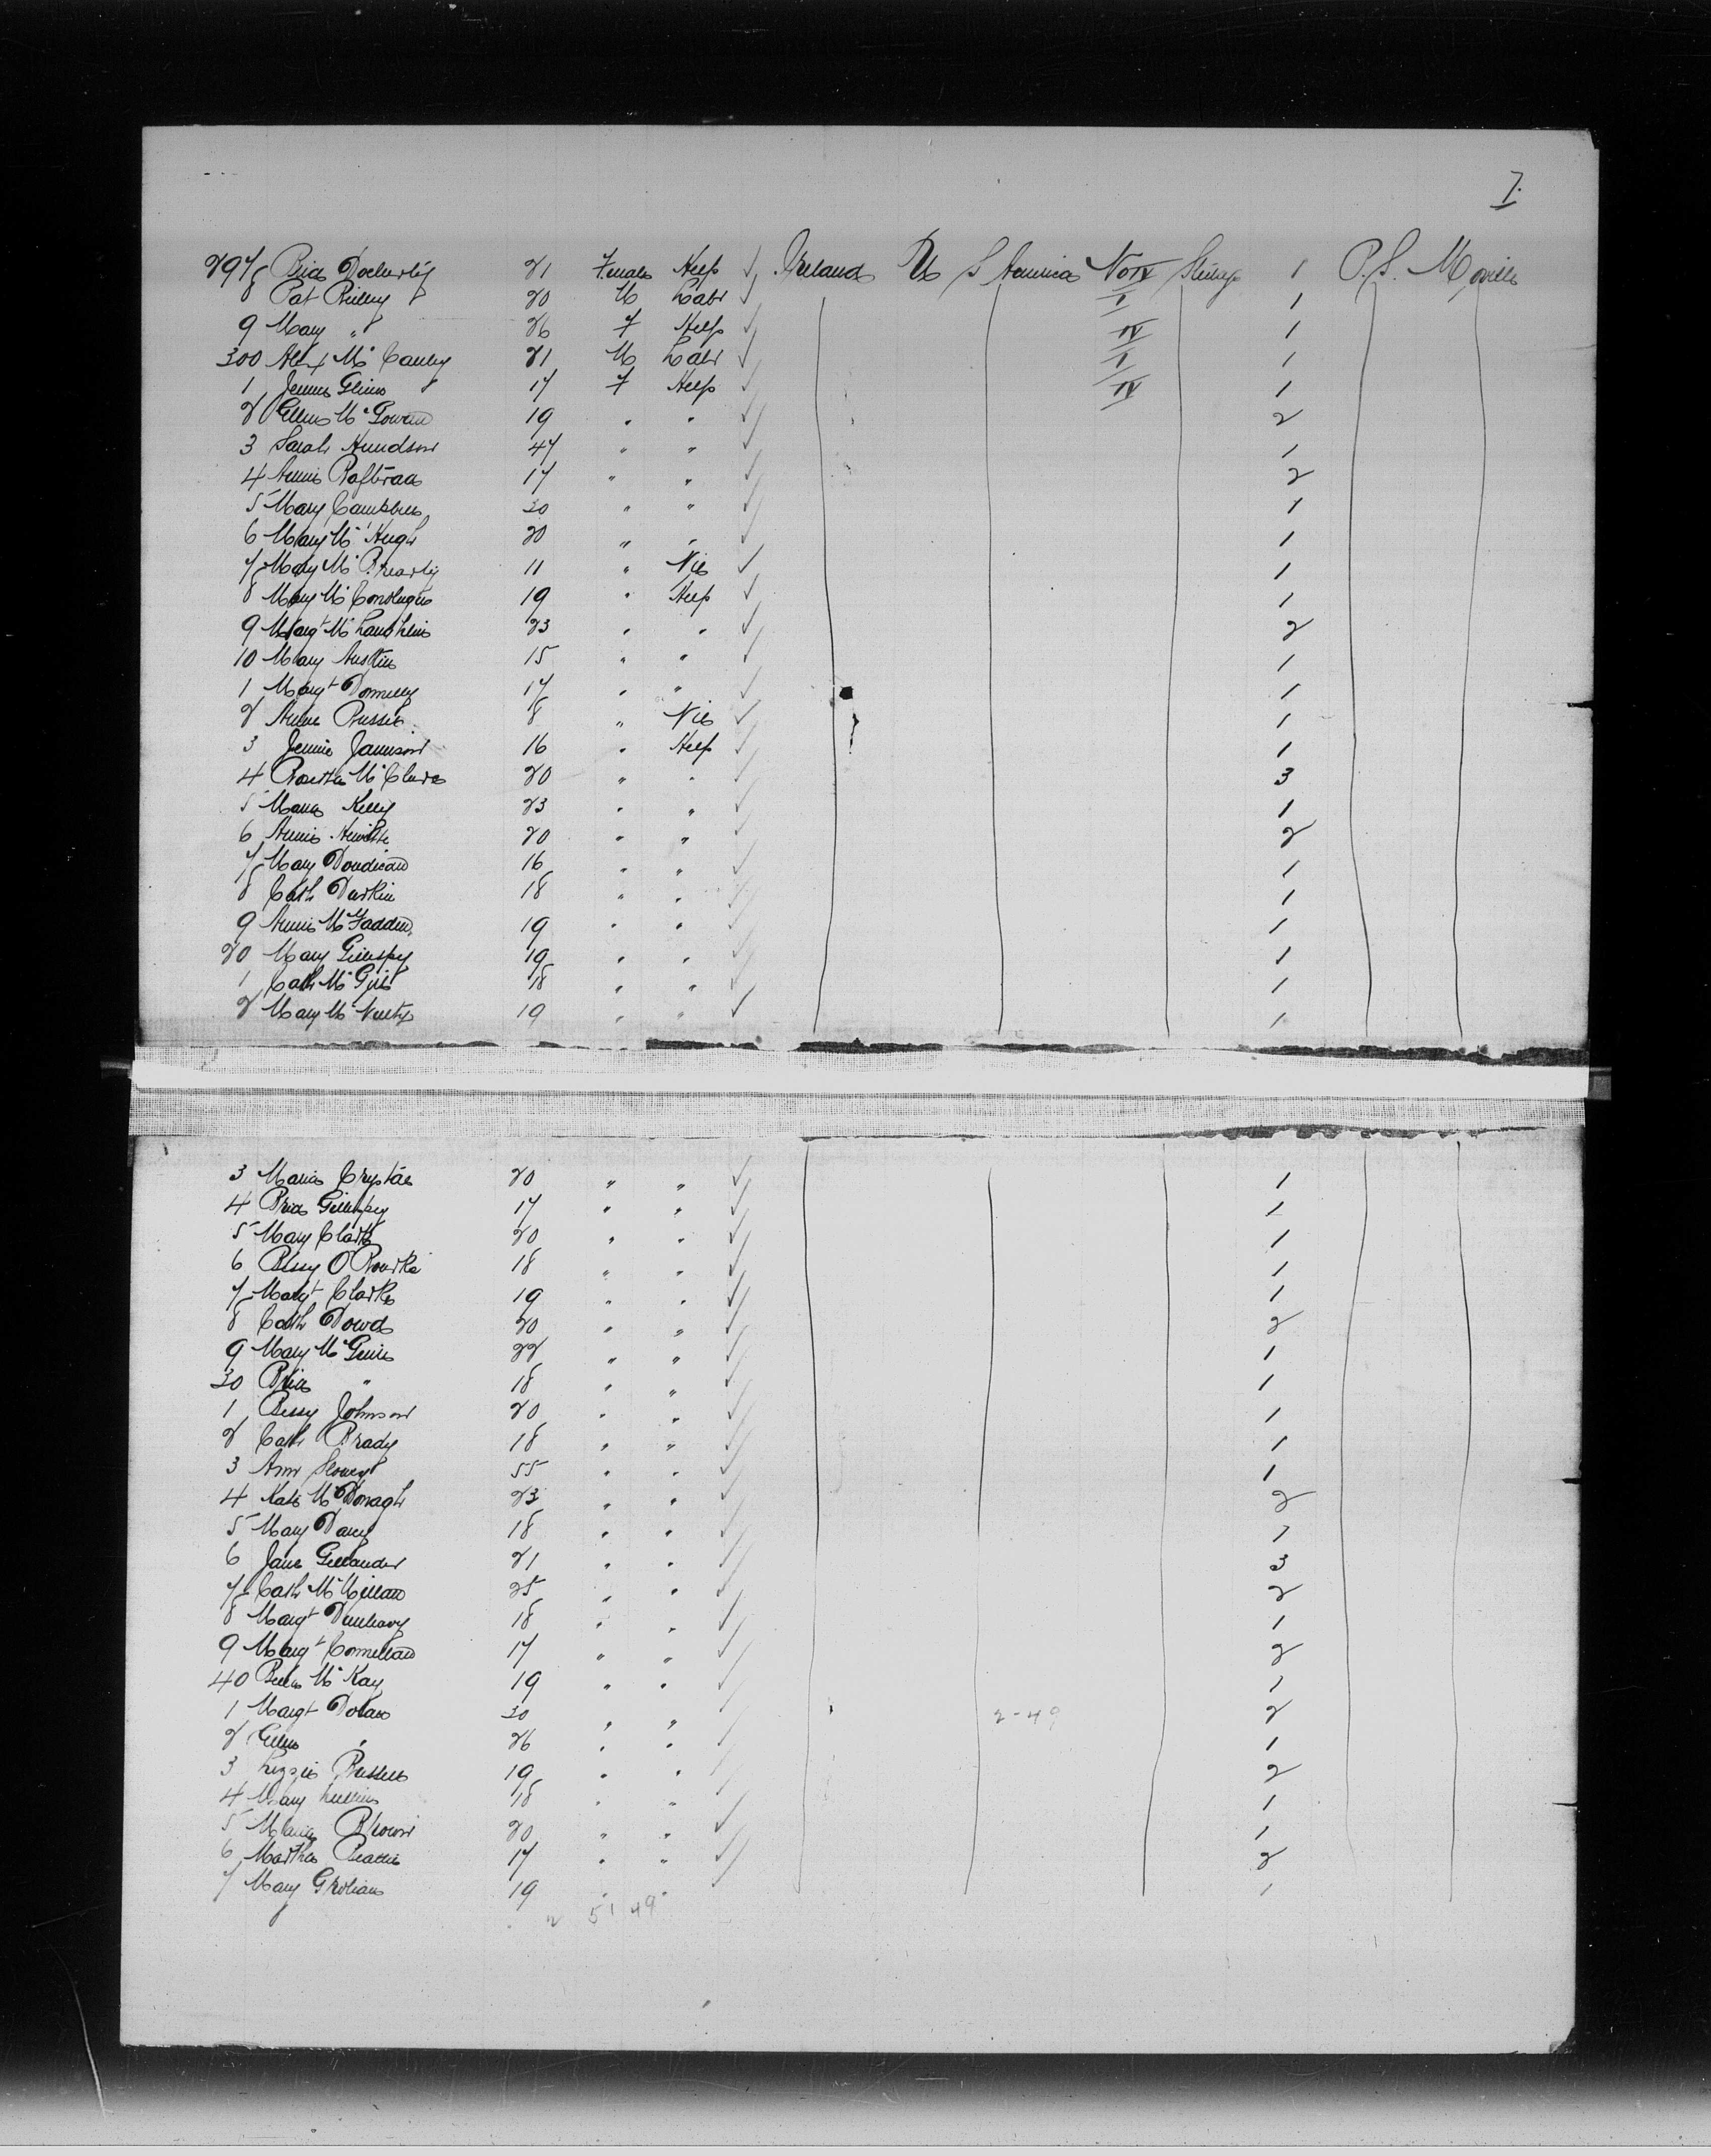 7.
297 Brid Docherty 21 Female Help ✓ Ireland U S America No IV Steerage 1 P. S. Moville
8 Pat Reilly 20 M Labr ✓ I 1
9 Mary " 26 F Help ✓ IV 1
300 Alex Mc Cauley 21 M Labr ✓ I 1
1 Jennie Glinn 17 F Help ✓ IV 1
2 Ellen Mc Gowan 19 " " ✓ 2
3 Sarah Hundson 47 " " ✓ 1
4 Annie 17 " " ✓ 2
5 Mary Campbell 30 " " ✓ 1
6 Mary Mc Hugh 20 " " ✓ 1
7 Mary Mc Brearty 11 " Nil ✓ 1
8 Mary Mc Conologue 19 " Help ✓ 1
9 Margt Mc Laughlin 23 " " ✓ 2
10 Mary Austin 15 " " ✓ 1
1 Margt Donnelly 17 " " ✓ 1
2 Annie Russell 8 " Nil ✓ 1
3 Jennie Jamison 16 " Help ✓ 1
4 Mc Clure 20 " " ✓ 3
5 Maria Kelly 23 " " ✓ 1
6 Annie 20 " " ✓ 2
7 Mary Dondican 16 " " ✓ 1
8 Cath Durkin 18 " " ✓ 1
9 Annie Mc Fadden 19 " " ✓ 1
20 Mary Gillespy 19 " " ✓ 1
1 Cath Mc Gill 18 " " ✓ 1
2 Mary Mc Nulty 19 " " ✓ 1
3 Maria Crystal 20 " " ✓ 1
4 Brid Gillespy 17 " " ✓ 1
5 Mary Clark 20 " " ✓ 1
6 Bessy O Rourke 18 " " ✓ 1
7 Margt Clarke 19 " " ✓ 1
8 Cath Dowd 20 " " ✓ 2
9 Mary Mc Guire 22 " " ✓ 1
30 Brid " 18 " " ✓ 1
1 Bessy Johnson 20 " " ✓ 1
2 Cath Brady 18 " " ✓ 1
3 Ann 55 " " ✓ 1
4 Kate Mc Donagh 23 " " ✓ 2
5 Mary Darcy 18 " " ✓ 1
6 Jane Gillander 21 " " ✓ 3
7 Cath Mc Millan 25 " " ✓ 2
8 Margt Dunleavy 18 " " ✓ 1
9 Margt Connellan 17 " " ✓ 2
40 Bella Mc Kay 19 " " ✓ 1
1 Margt Dolan 30 " " ✓ 2-49 2
2 Ellen " 26 " " ✓ 1
3 Lizzie Russell 19 " " ✓ 2
4 Mary Cullins 18 " " ✓ 1
5 Brown 20 " " ✓ 1
6 Martha Beattie 17 " " ✓ 2
7 Mary 19 " " ✓ 1
2 51 49